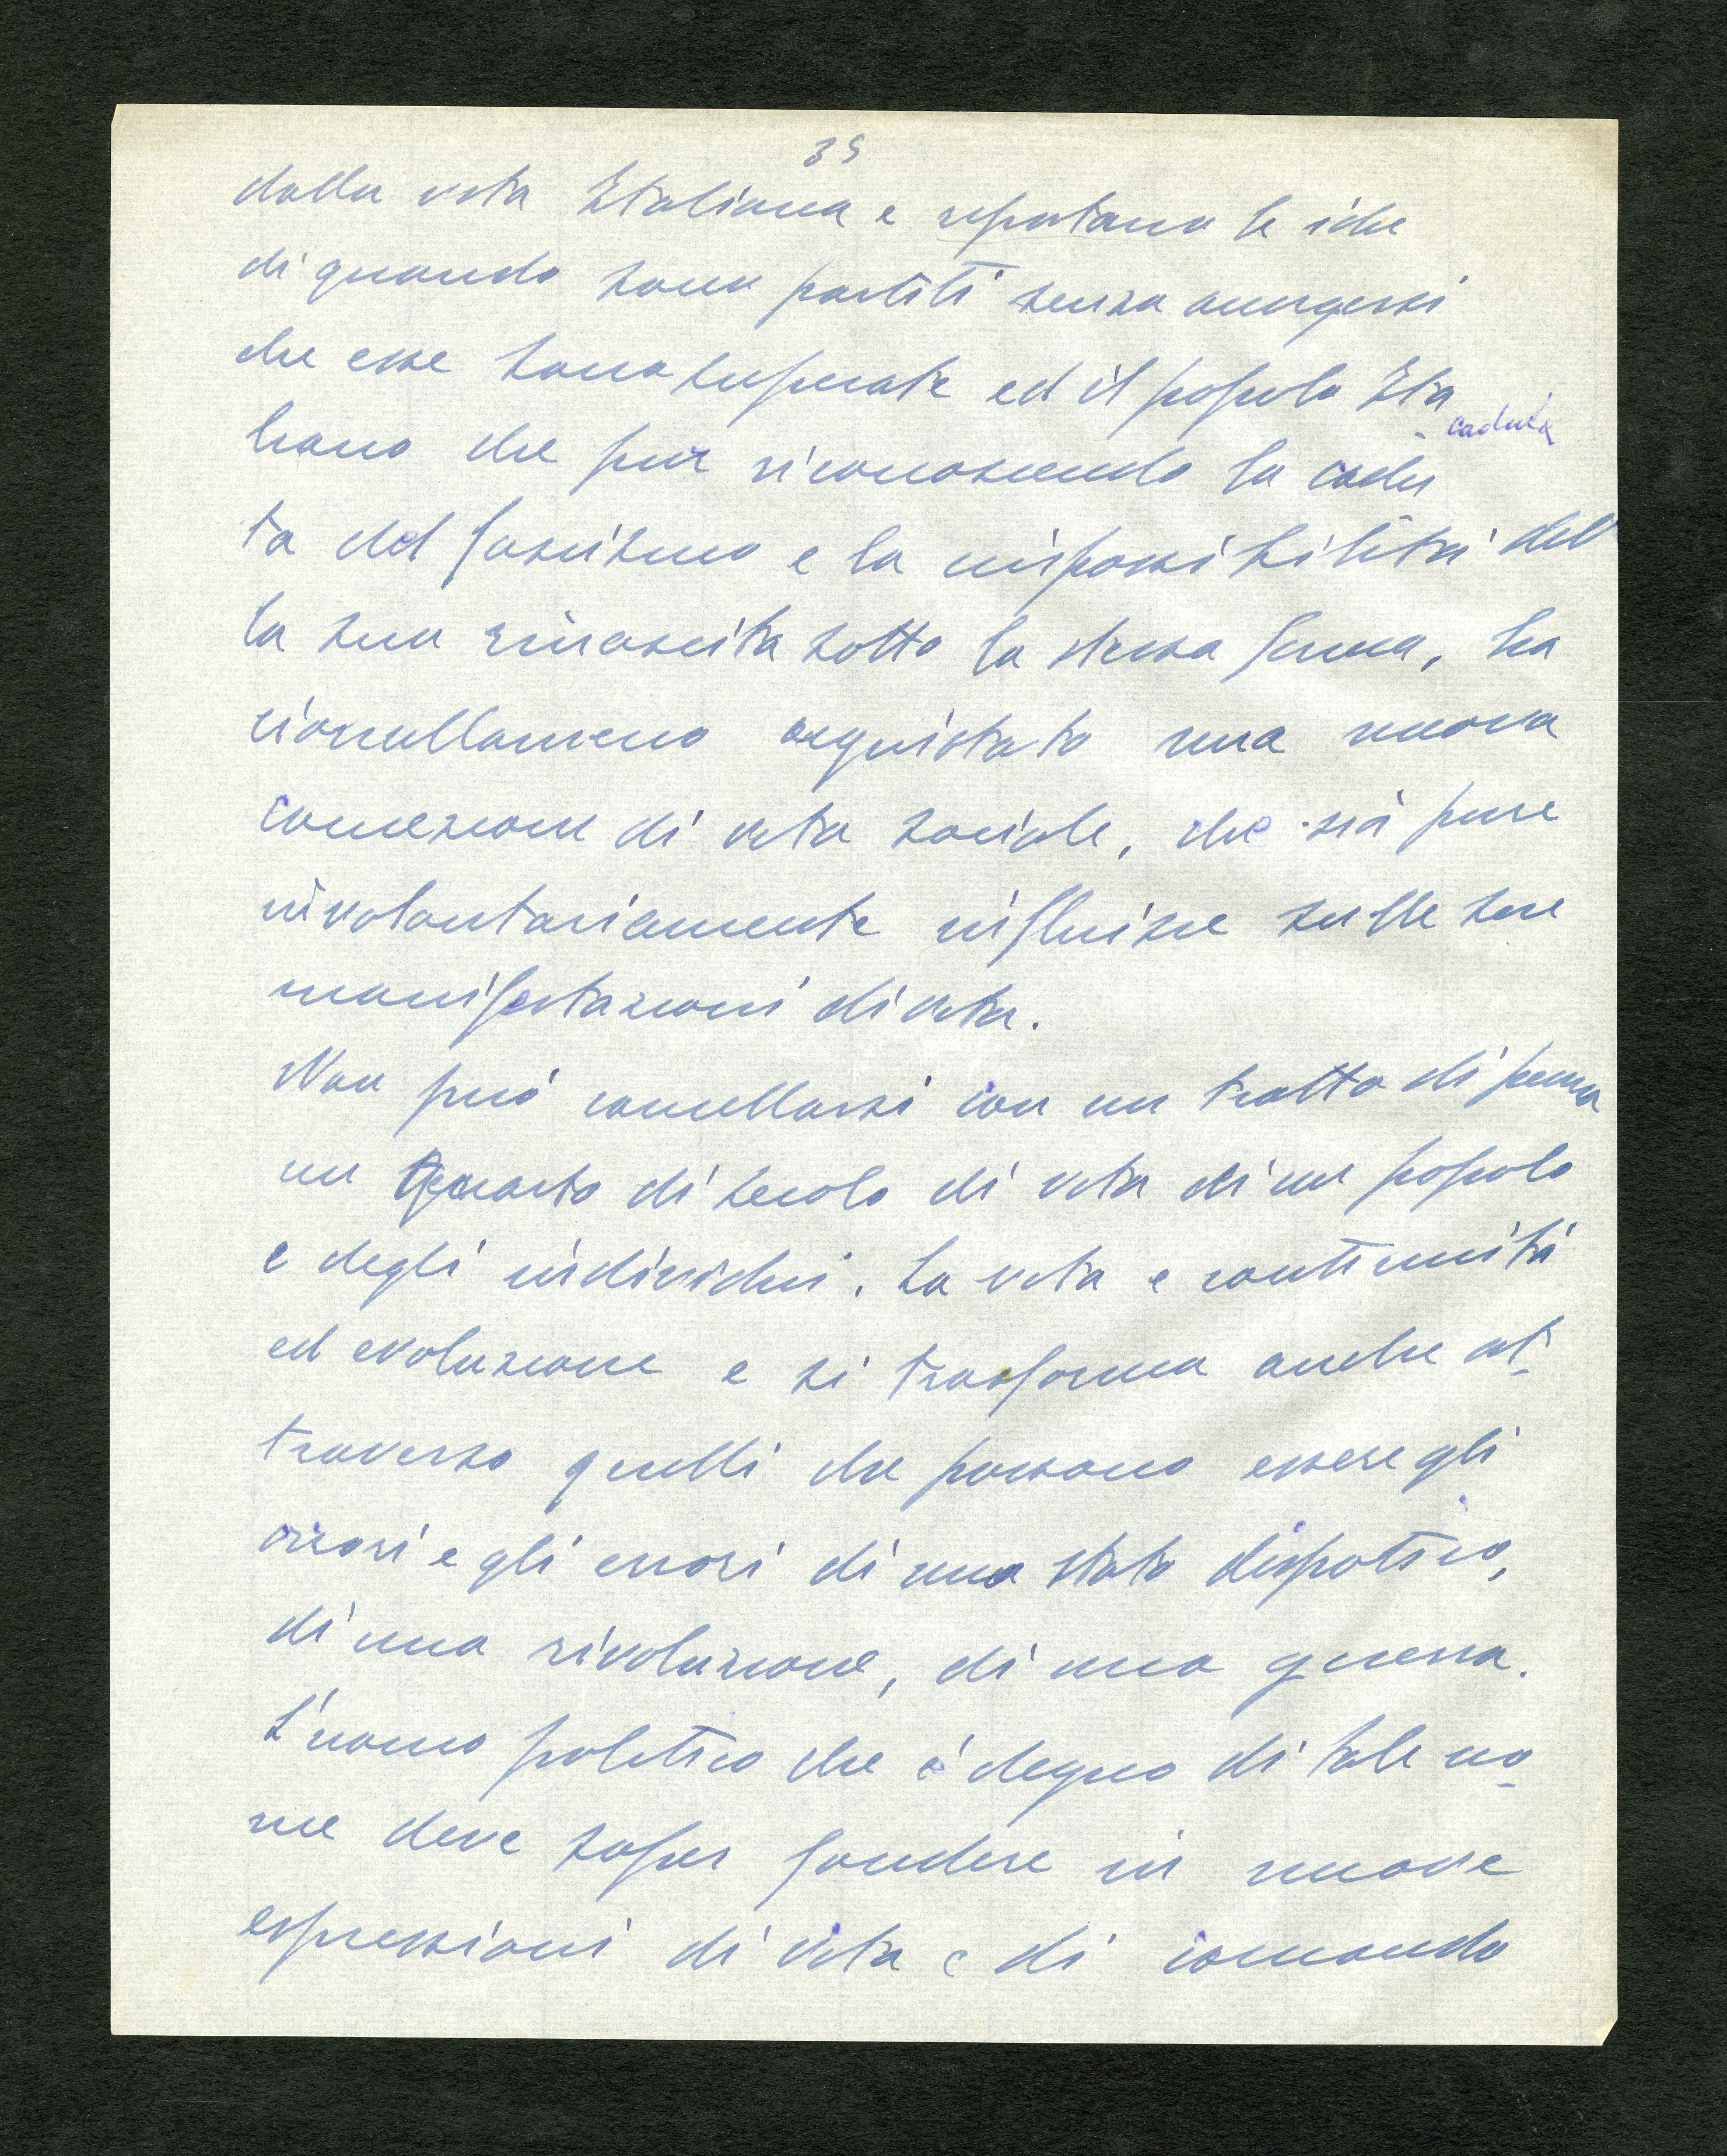 39
dalla vita Italiana e riportano le idee
di quando sono partiti senza accorgersi
che esse sono superate ed il popolo Ita
caduta
liano che pur riconoscendo la cadu
ta del fascismo e la impossibilità del
la sua rinascita sotto la stessa forma, ha
cionullameno acquistato una nuova
concezione di vita sociale, che sia pure
involontariamente influisce sulle sue
manifestazioni di vita.
Non può cancellarsi con un tratto di penna
un quarto di secolo di vita di un popolo
e degli individui. La vita e continuità
ed evoluzione e si trasforma anche at-
traverso quelli che possono essere gli
orrori e gli errori di uno stato dispotico,
di una rivoluzione, di una guerra.
L'uomo politico che è degno di tale no-
me deve saper fondere in nuove
espressioni di vita e di comando